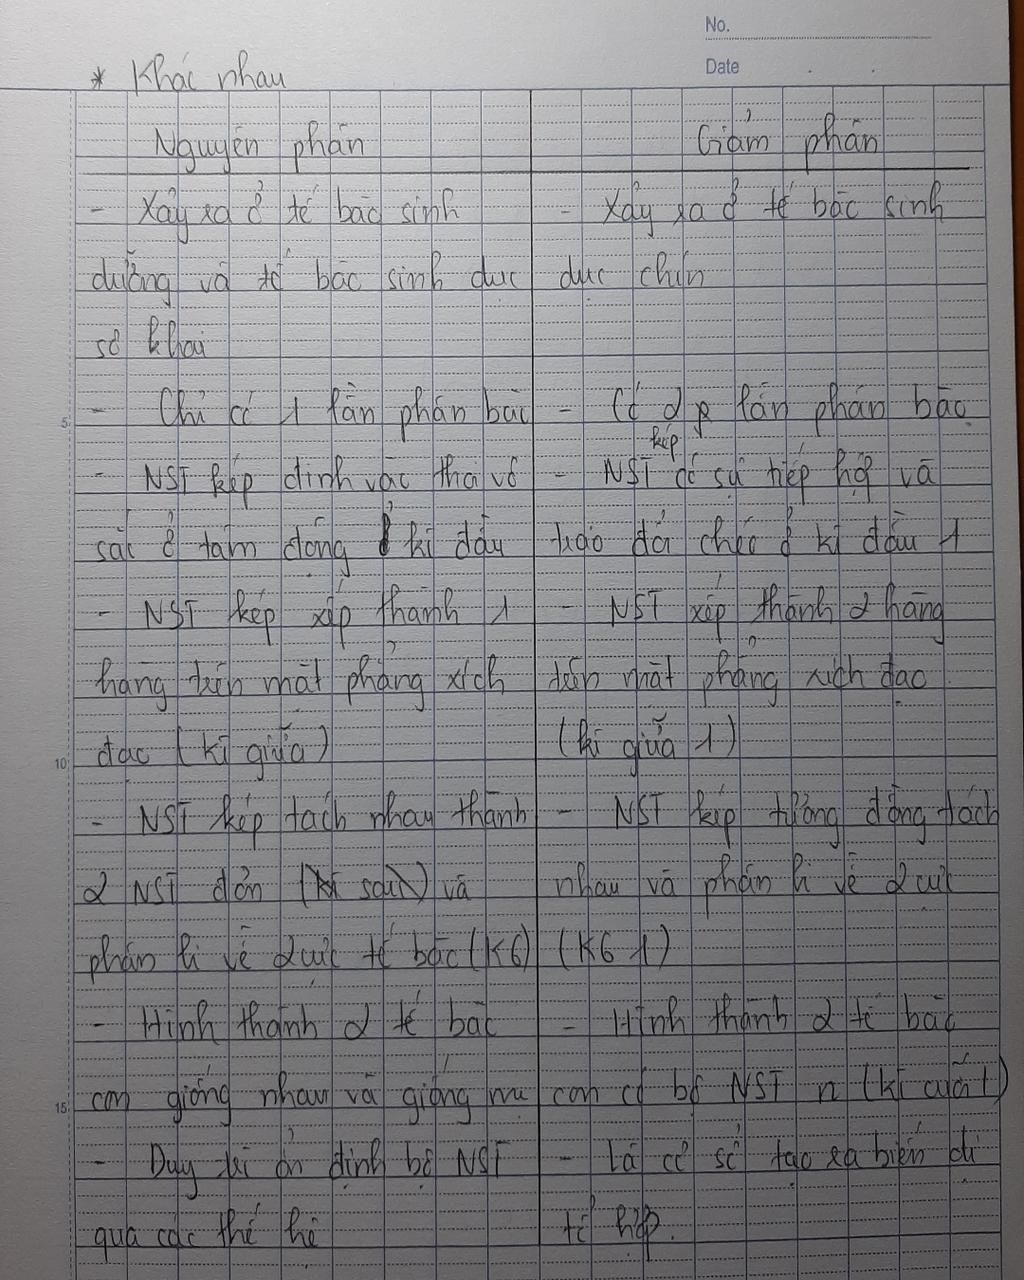 No.
Date
* Khác nhau
Nguyên phân
- Xảy ra ở tế bào sinh
dưỡng và tế bào sinh dục
sơ khai
- Chỉ có 1 lần phân bào
- NST kép đính vào thoi vô
sắc ở tâm động ở kì đầu
- NST kép xếp thành 1
hàng trên mặt phẳng xích
đạo (kì giữa)
- NST kép tách nhau thành
2 NST đơn (kì sau) và
phân li về 2 cực tế bào (K6)
- Hình thành 2 tế bào
con giống nhau và giống mẹ
- Duy trì ổn định bộ NST
qua các thế hệ
Giảm phân
- Xảy ra ở tế bào sinh
dục chín
- Có 2 lần phân bào
- NST kép có sự tiếp hợp và
trao đổi chéo ở kì đầu 1
- NST xếp thành 2 hàng
trên mặt phẳng xích đạo
(kì giữa 1)
- NST kép tương đồng tách
nhau và phân li về 2 cực
(K6 1)
- Hình thành 2 tế bào
con có bộ NST n (kì cuối 1)
- Là cơ sở tạo ra biến dị
tổ hợp.
5
10
15